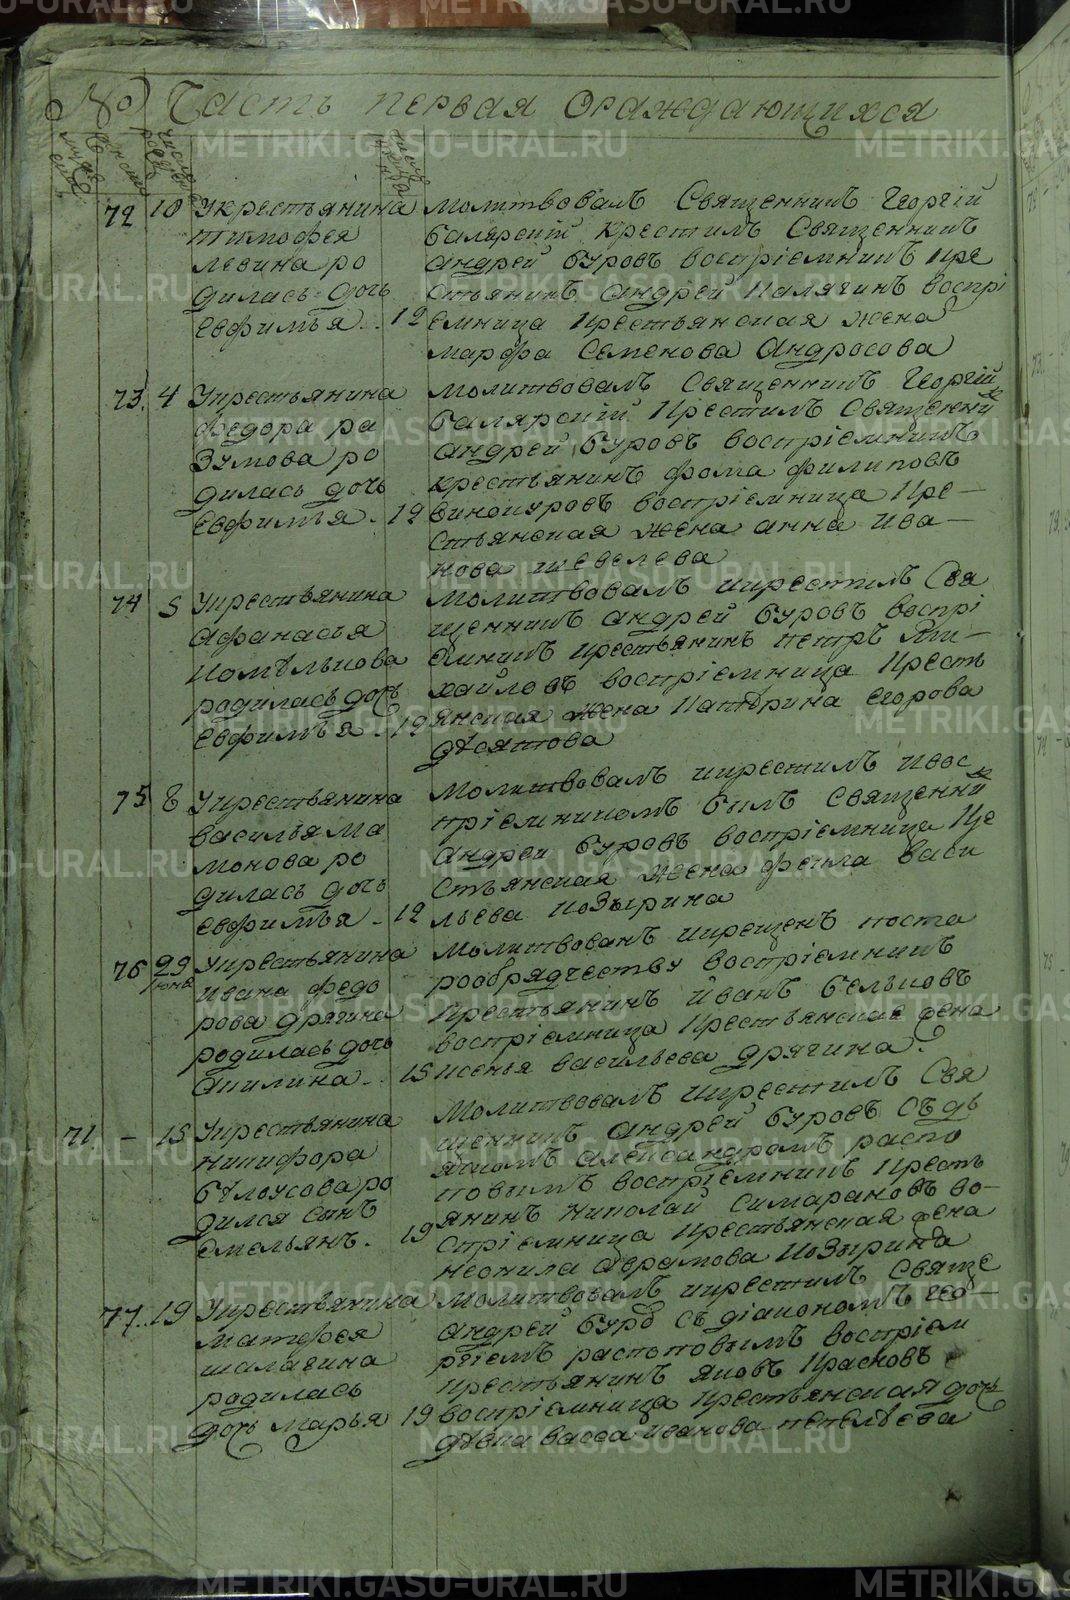 № Часть первая ораждающихся
72 10 Укрестьянина
тимофея
левина ро
дилась дочь
Евфимья.. 12
молитвовалъ Священникъ Георгій
балярскій крестилъ Священникъ
андрей буровъ воспріемникъ кре
стьянинъ андрей калягинъ воспрі
емница крестьянская жена
марфа Семенова Андросова
73. 4 Укрестьянина
федора ра
зумова ро
дилась дочь
Евфимья. 12
молитвовалъ Священникъ Георгій
балярскій крестилъ Священни
андрей буровъ воспріемникъ
крестьянинъ фома филиповъ
винокуровъ воспріемница кре-
стьянская жена анна ива-
нова шевелева
74 5 Укрестьянина
афанасья
родилась дочь
Евфимья. 12
молитвовалъ икрестилъ Свя
щенникъ андрей буровъ воспрі
емникъ крестьянинъ петръ ми-
хайловъ воспріемница кресть
янская жена катерина егорова
десятова
75 8 Укрестьянина
василья ма
монова ро
дилась дочь
Евфимья - 12
молитвовалъ икрестилъ ивос
пріемникомъ былъ священни
андрей буровъ воспріемница кре
стьянская жена фекла васи
льева козырина
76 29 июня Укрестьянина
ивана федо
рова дрягина
родилась дочь
акилина.. 15
молитвованъ икрещенъ поста
рообрядчеству воспріемникъ
крестьянинъ иванъ бельковъ
воспріемница крестьянская жена
ксенья васильева дрягина.
71. - 15 Укрестьянина
никифора
белоусова ро
дился сынъ
Емельянъ. 19
молитвовалъ икрестилъ Свя
щенникъ андрей буровъ съ дь
якомъ александромъ распо
повымъ воспріемникъ кресть
янинъ николай симарановъ во-
спріемница крестьянская жена
неонила аврамова козырина
77.. 19 Укрестьянина
матфея
шалагина
родилась
дочь марья 19
молитвовалъ икрестилъ Свяще
андрей буро съ діакономъ гео-
ргіемъ распоповымъ воспріем
крестьянинъ яковъ красновъ
воспріемница крестьянская дочь
девка васса иванова пепелева
METRIKI.GASO-URAL.RU